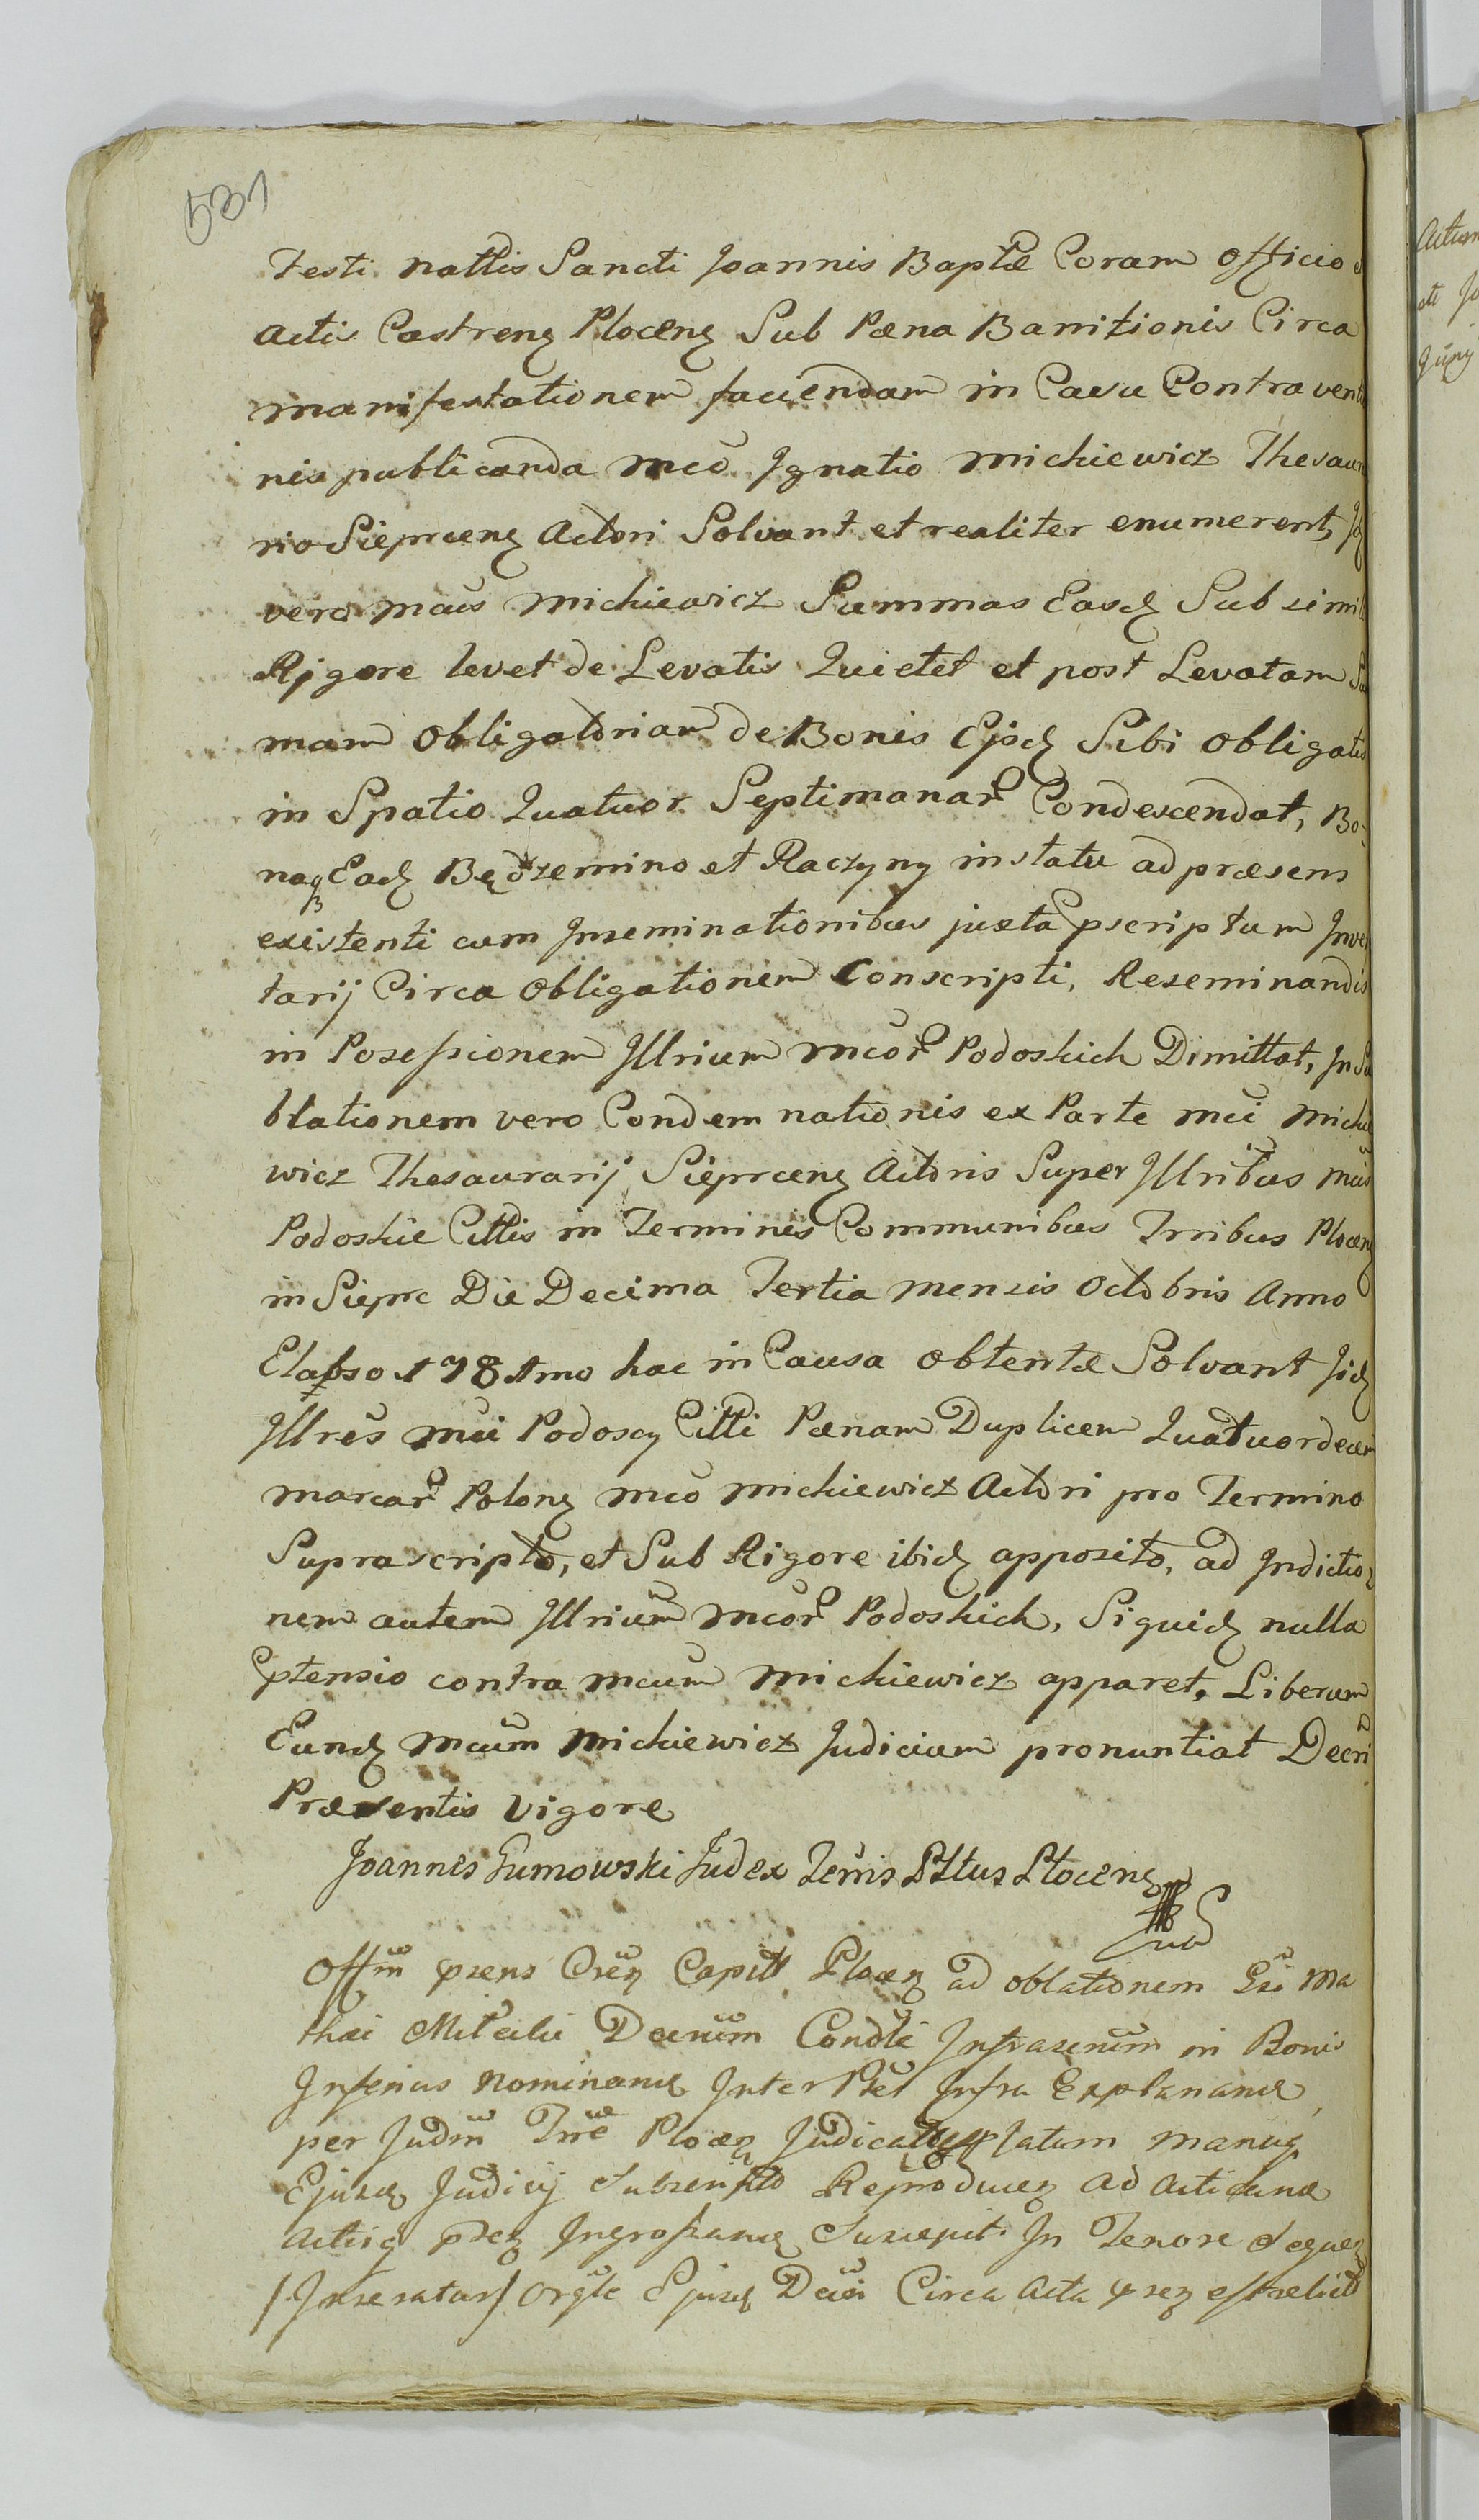 531
Festi nattis Sancti Joannis Baptæ Coram officio
actis Castrenꝫ Plocenꝫ Sub Pæna Bannitionis Circa
manifestationem faciendam in Casu Contraventi
nis publicanda mco Ignatio Michiewicz Thesaur
rio Sieprcenꝫ actori Solvant et realiter enumerent,
vero mcus Michiewicz Summas Easdꝫ Sub simili
Rigore levet de Levatis Quietet et post Levatam
mam obligatoriam de Bonis Ejsdꝫ Sibi obligatis
in Spatio Quatuor Septimanar Condescendat, Bo-
naqꝫ Eadꝫ Będzemino et Raczyny in statu ad præsens
existenti cum Inseminationibus juxta pscriptum Inven
tarij Circa obligationem Conscripti, Reseminandis
in Posessionem Illrium mcor Podoskich Dimittat, In
blationem vero Condemnationis ex Parte mci Michie
wicz Thesaurarij Sieprcenꝫ actoris Super Illribus mcis
Podoskie Cittis in Terminis Communibus Trribus Plocenꝫ
in Sieprc Die Decima Tertia mensis octobris Anno
Elapso 1781mo hac in Causa obtentæ Solvant Jidꝫ
Illres mci Podoscy Citti Pænam Duplicem Quatuordecem
marcar Polonꝫ mco Michiewicz Actori pro Termino
Suprascripto, et Sub Rigore ibidꝫ apposito, ad Indictio
nem autem Illrium mcor Podoskich, Siquidꝫ nulla
ptensio contra mcum Michiewicz apparet, Liberum
Eundꝫ mcum Michiewicz Judicium pronuntiat Decri
Præsentis Vigore
Joannes Gumowski Judex Terris Pttus Plocenꝫ
Offm psens Crenꝫ Capitt Plocenꝫ ad oblationem Gsi Ma
thæi Decrum Condle Infrascrum in Bonis
Inferius Nominandꝫ Inter Ptes Infra Explanandꝫ
per Judm Trre Plocenꝫ latum manuqꝫ
Ejusdꝫ Judicij Subscripto Reproducꝫ ad acticandꝫ
Actisqꝫ Ingrossandꝫ Suscepit. In Tenore Sequenꝫ
/Inseratur/ orgle Ejusdꝫ Decri Circa Acta psenꝫ est relict